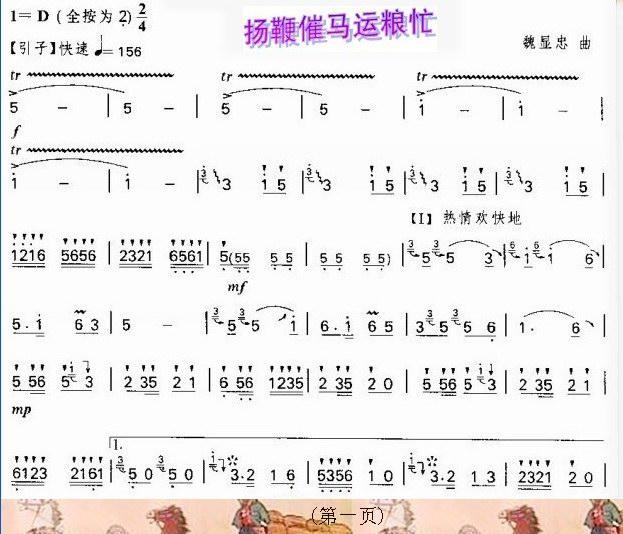 1=D (全按为2) 2/4
扬鞭催马运粮忙
【引子】快速 ♩=156
魏显忠 曲
tr tr tr
5 - | 5 - | 5 - | 5 - | i - | i - |
f
tr
i - | i - | 3 i 5 | 3 i 5 | 3 i 5 | 3 i 5 |
【I】热情欢快地
1216 5656 | 2321 6561 | 5(55 55 | 55 55) | 5 5 3 | i i 6 |
mf
5. i 6 3 | 5 - | 5 5 i | 6. i 6 5 | 3 5 5 6 | 1. 6 |
5 56 5 3 | 2 35 2 1 | 6 56 1235 | 2 35 2 0 | 5 56 5 3 | 2 35 2 1 |
mp
1.
6123 2161 | 5 0 5 0 | 3.2 1 6 | 5356 1 0 | 3.2 1 3 | 2321 2 0 |
(第一页)